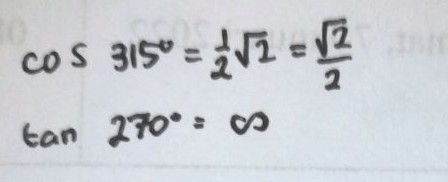 cos 315° = 1/2 √2 = √2/2
tan 270° = ∞